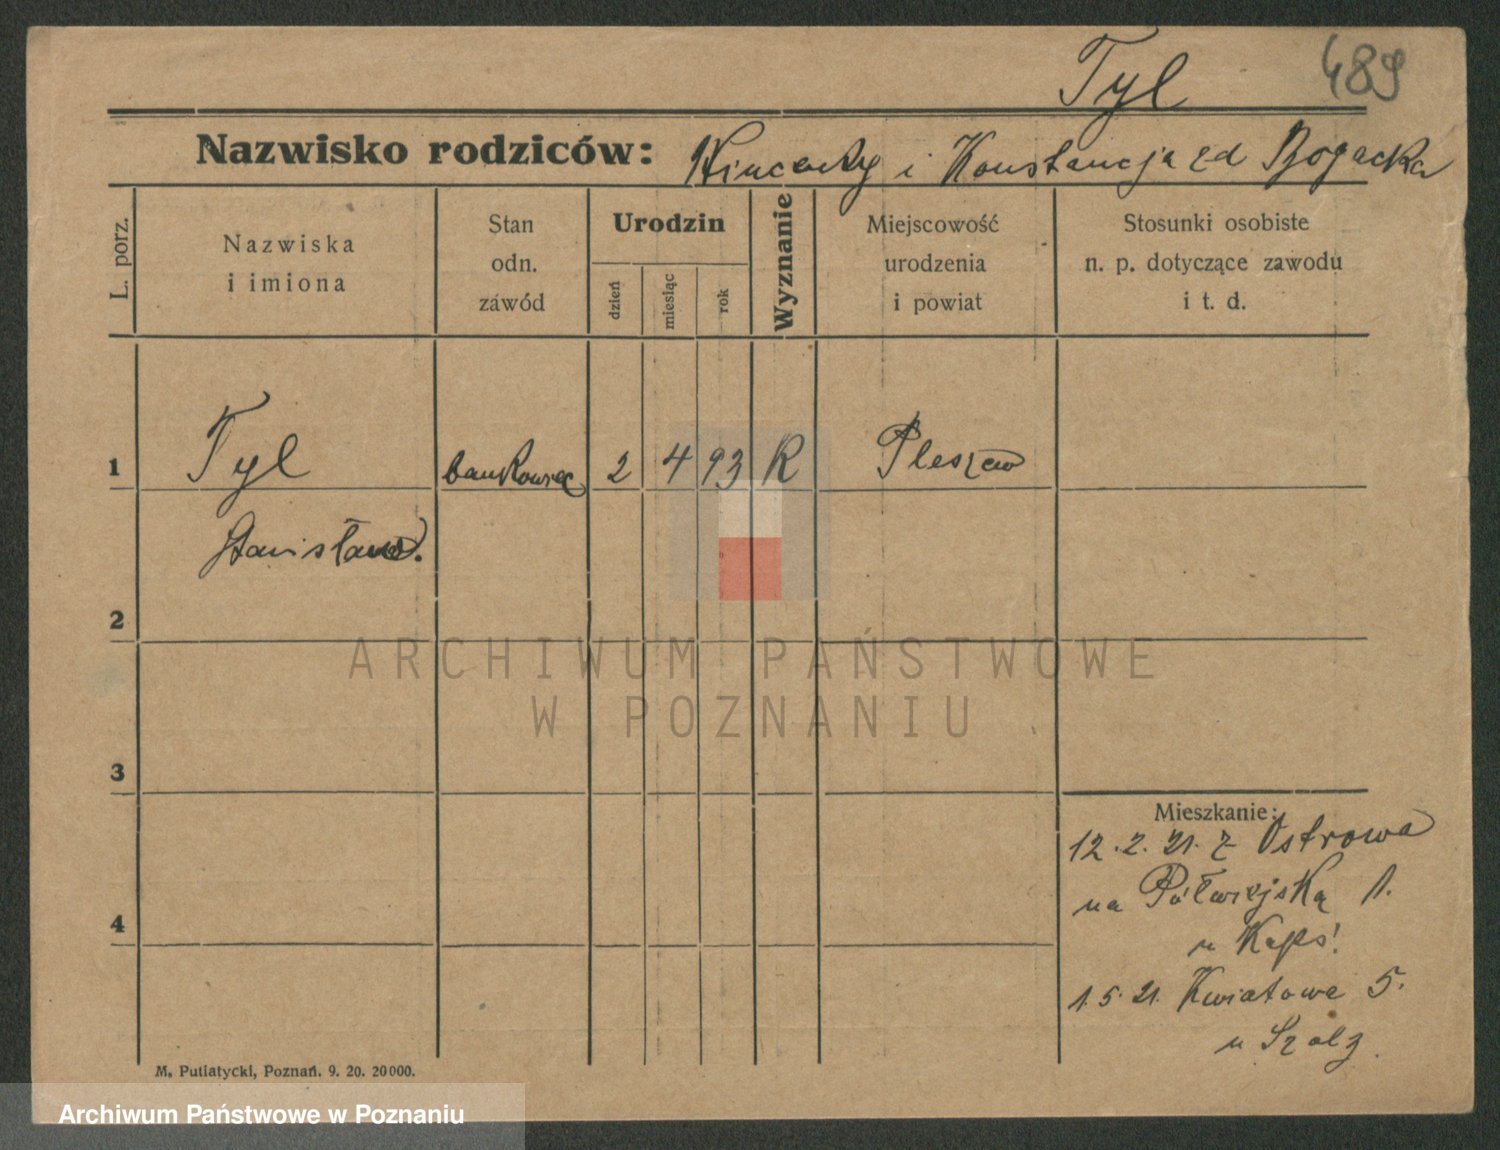 Tyl
489
Nazwisko rodziców: Wincenty i Konstancja zd Bogacka
L. porz.
Nazwiska
i imiona
Stan
odn.
zawód
Urodzin
dzień
miesiąc
rok
Wyznanie
Miejscowość
urodzenia
i powiat
Stosunki osobiste
n. p. dotyczące zawodu
i t. d.
1 Tyl bankowiec 2 4 93 R Pleszew
Stanisław.
2
ARCHIWUM PAŃSTWOWE
W POZNANIU
3
Mieszkanie:
12.2.21. z Ostrowa
na Półwiejską 1.
u
4
1.5.21. Kwiatowa 5.
u
M. Putiatycki, Poznań. 9. 20. 20000.
Archiwum Państwowe w Poznaniu